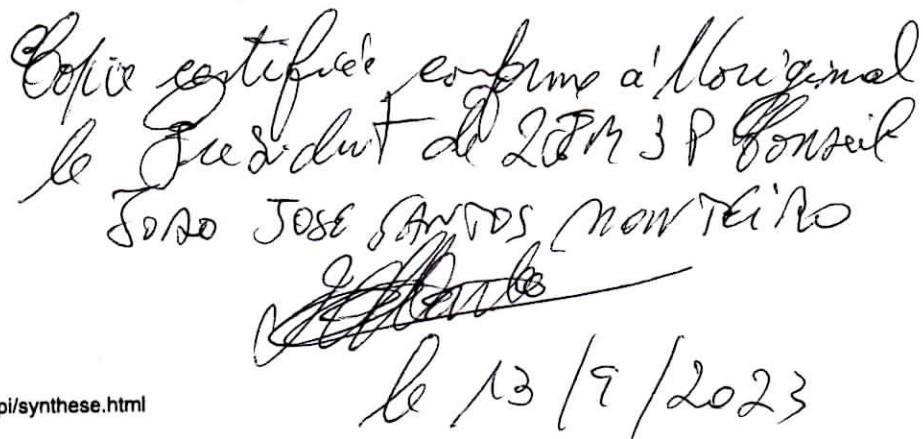 Copie certifiée conforme à l'original
le Président de 2JM3P Conseil
JOAO JOSE SANTOS MONTEIRO
le 13/9/2023
pi/synthese.html